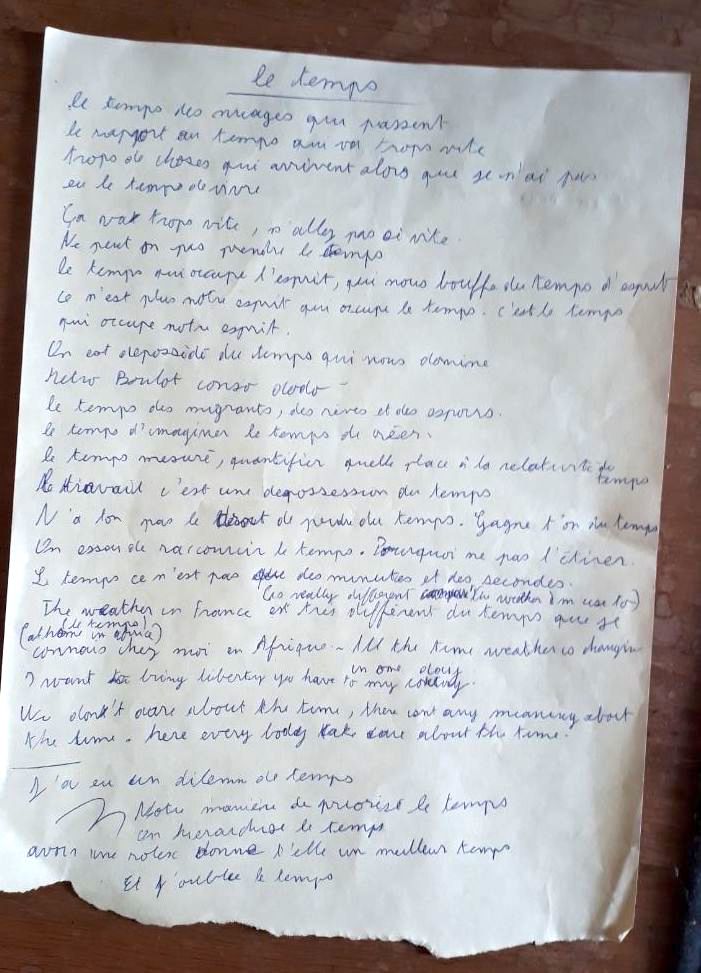 le temps
le temps des nuages qui passent
le rapport au temps qui va trops vite
trops de choses qui arrivent alors que je n'ai pas
eu le temps de vivre
Ça va trops vite, n'allez pas si vite.
Ne peut on pas prendre le temps
le temps qui occupe l'esprit, qui nous bouffe du temps d'esprit
ce n'est plus notre esprit qui occupe le temps. c'est le temps
qui occupe notre esprit.
On est depossédé du temps qui nous domine
Metro Boulot conso dodo -
le temps des migrants, des rèves et des espoirs.
le temps d'imaginer le temps de créer.
le temps mesuré, quantifier quelle place à la relativité du
temps
le travail c'est une depossession du temps
N'a ton pas le droit de perdre du temps. Gagne t'on du temps
On essaie de raccourcir le temps. Pourquoi ne pas l'étirer.
Le temps ce n'est pas que des minutes et des secondes.
(is really different the weather I'm use to)
The weather in France est très différent du temps que je
(le temps)
(at home in africa)
connais chez moi en Afrique - All the time weather is changin
in one day
I want to bring liberty you have to my country.
We donk't care about the time, there isnt any meaning about
the time. here every body take care about the time.
J'a eu un dilemn de temps
Notre manière de priorisé le temps
on hierarchise le temps
avoir une rolex donne t'elle un meilleur temps
Et j'oublie le temps